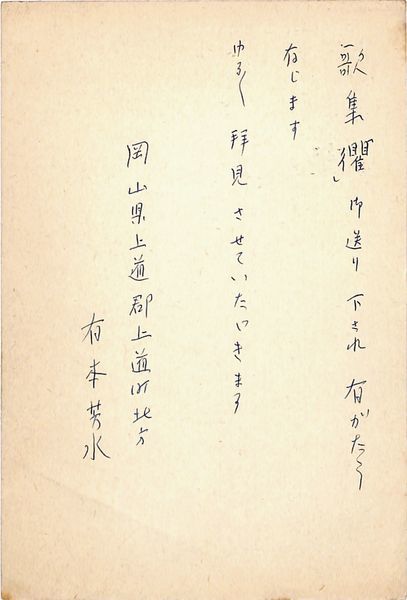 歌集『』御送り下され 有がたう
存じます
ゆる〱 拝見させていたゞきます
岡山県上道郡上道町北方
有本芳水